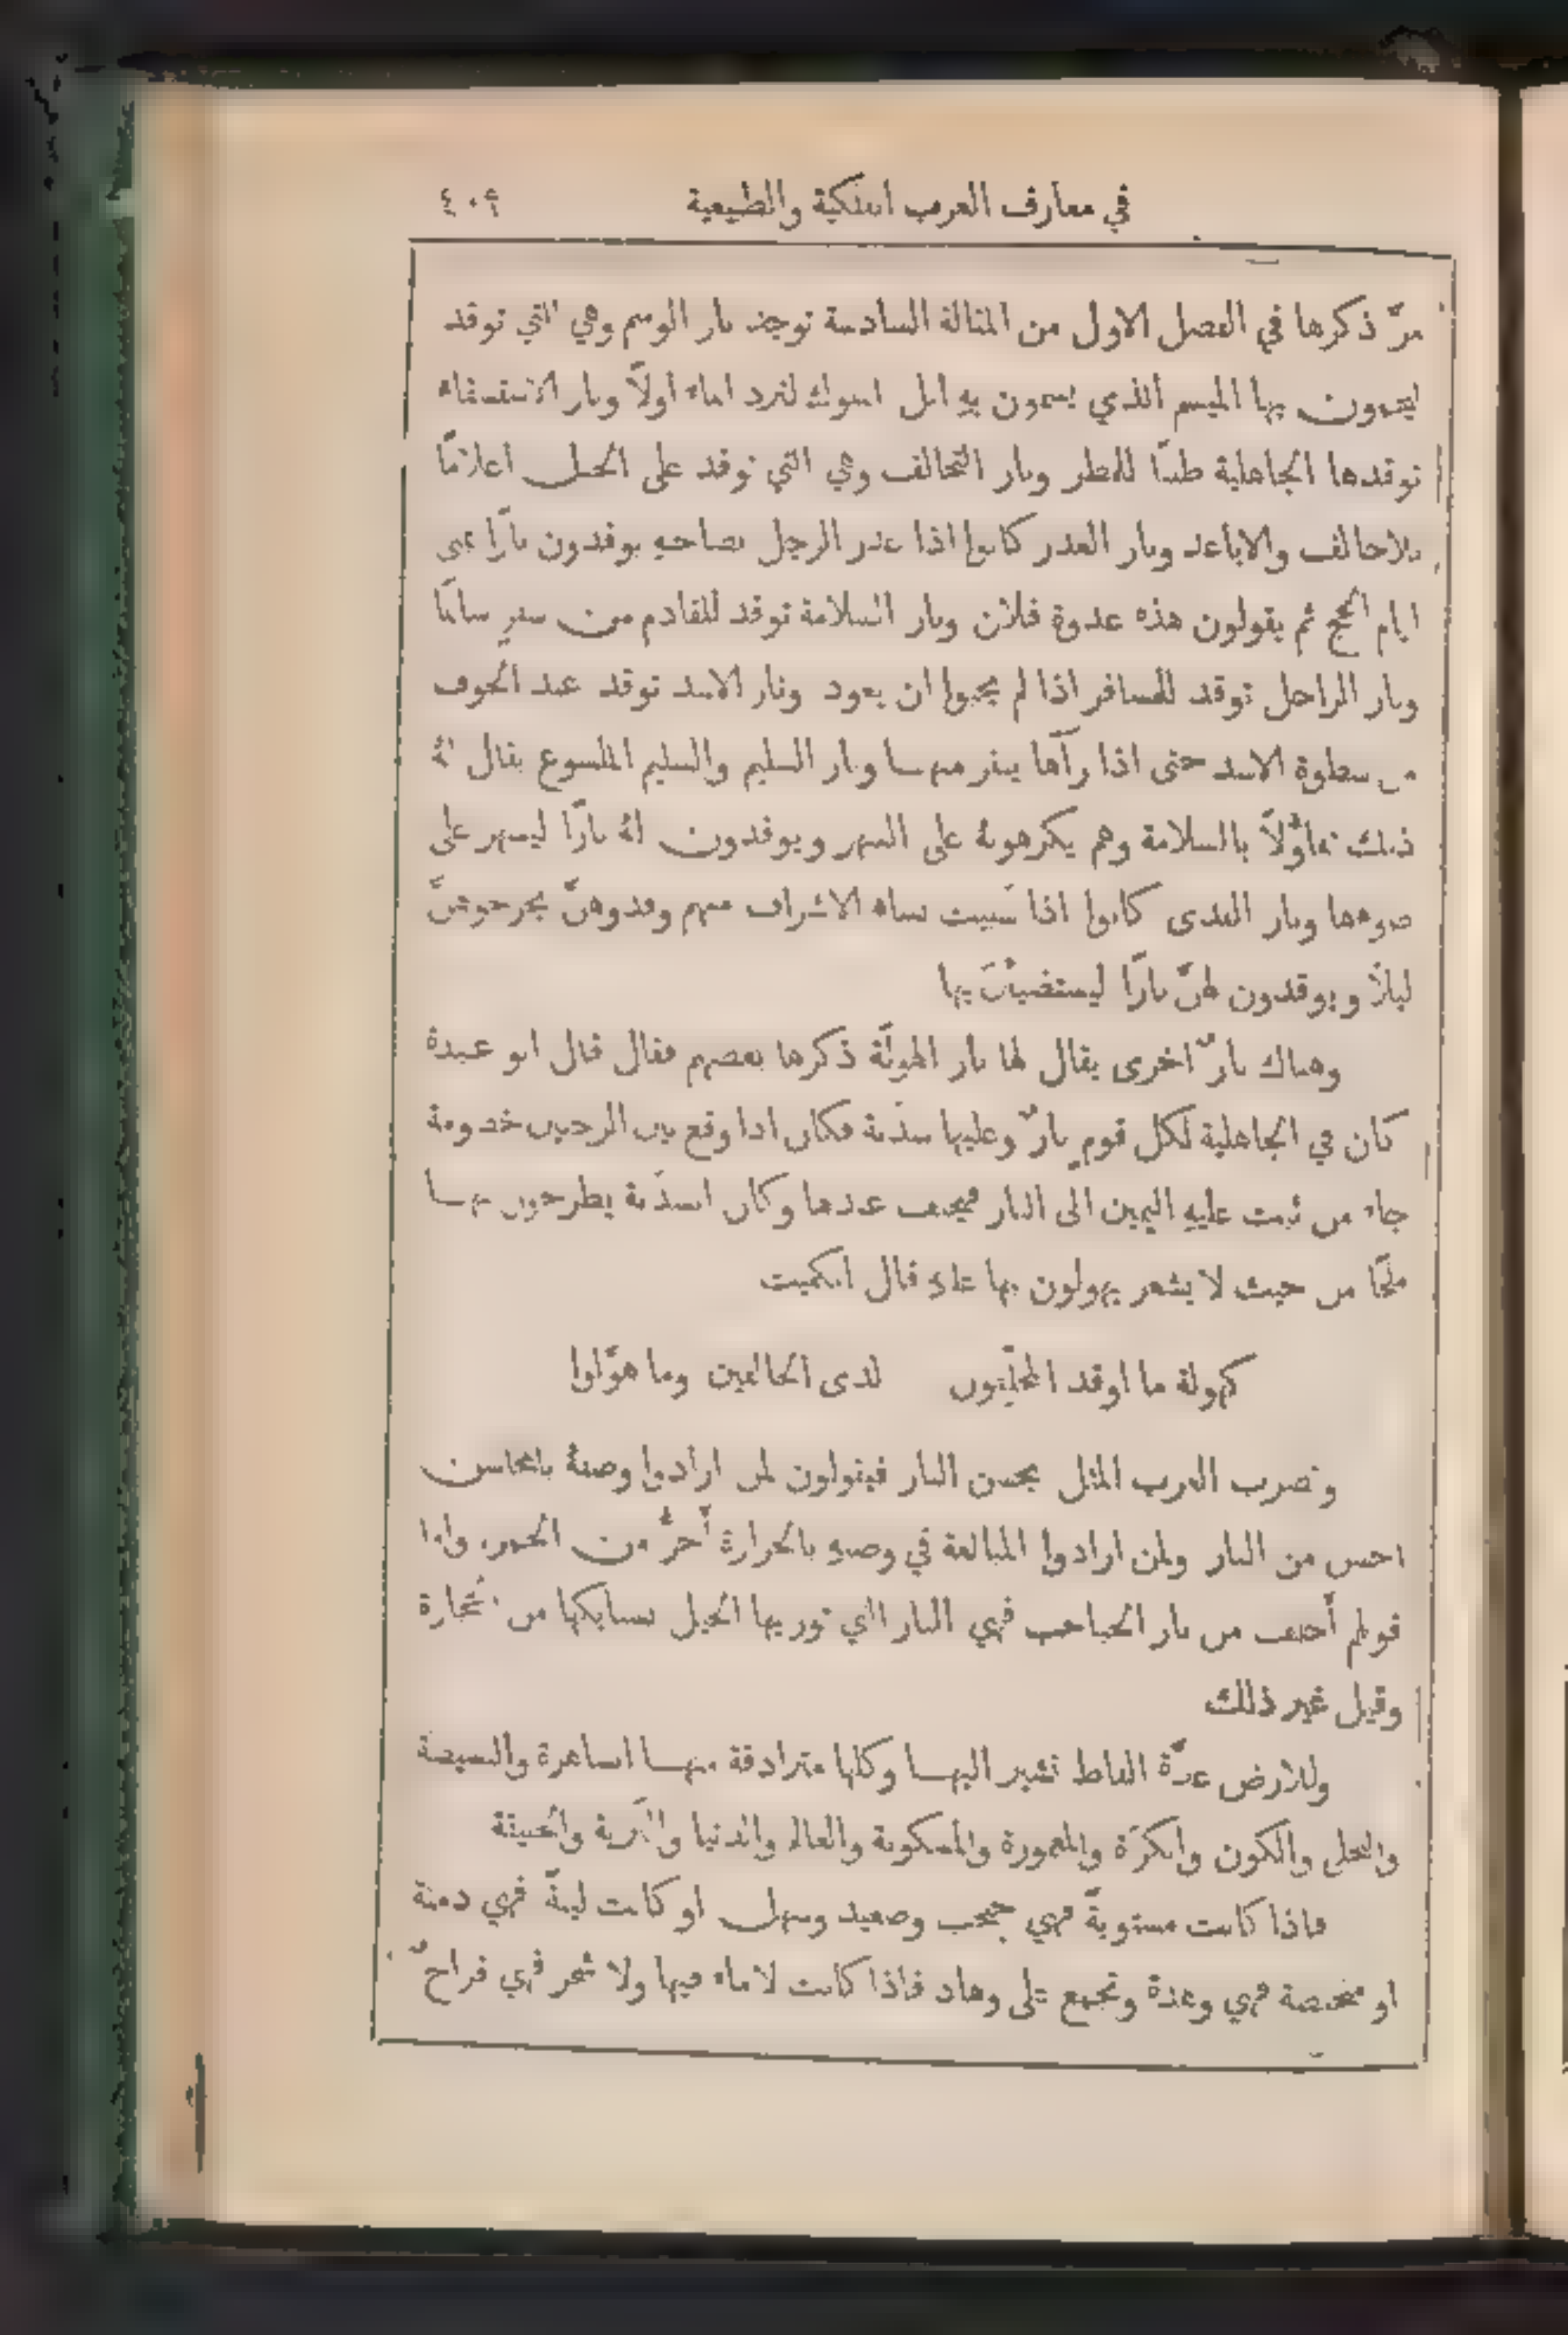 في معارف العرب الفلكية والطبيعية ٤٠٩
مرّ ذكرها في الفصل الاول من المقالة السادسة توجد نار الوسم وهي التي توقد
بها الميسم الذي يسمون بهِ ابل الملوك لترد الماء اولاً ونار الاستسقاء
توقدها الجاهلية طلبًا للمطر ونار التحالف وهي التي توقد على الجبل اعلامًا
والاباعد ونار الغدر كانوا اذا غدر الرجل بصاحبهِ يوقدون نارًا بمنى
ايام الحج ثم يقولون هذه غدرة فلان ونار السلامة توقد للقادم من سفرٍ سالمًا
ونار الراحل توقد للمسافر اذا لم يحبوا ان يعود ونار الاسد توقد عند الخوف
من سطوة الاسد حتى اذا رآها ينفر منها ونار السليم والسليم الملسوع يقال لهُ
ذلك تفاؤُلاً بالسلامة وهم يكرهونهُ على السهر ويوقدون لهُ نارًا ليسهر على
ضوءها ونار الفدى كانوا اذا سُبيت نساء الاشراف منهم وفدوهنَّ يخرجوهنَّ
ليلاً ويوقدون لهنَّ نارًا ليستضيئنَ بها
وهناك نارٌ اخرى يقال لها نار الهولة ذكرها بعضهم فقال قال ابو عبيدة
كان في الجاهلية لكل قومٍ نارٌ وعليها سدَنة فكان اذا وقع بين الرجلين خصومة
جاء من ثبت عليهِ اليمين الى النار فيحلف عندها وكان السدَنة يطرحون بها
ملحًا من حيث لا يشعر يهولون بها عليهِ قال الكميت
كهولة ما اوقد المحلّفون لدى الحالفين وما هوّلوا
وتضرب العرب المثل بحسن النار فيقولون لمن ارادوا وصفهُ بالمحاسن
احسن من النار ولمن ارادوا المبالغة في وصفهِ بالحرارة أَحرُّ من الجمر، واما
قولهم أخلف من نار الحباحب فهي النار التي توريها الخيل بسنابكها من الحجارة
وقيل غير ذلك
وللارض عدّة الفاظ تشير اليها وكلها مترادفة منها الساهرة والبسيطة
والكون والكرَة والمعمورة والمسكونة والعالم والدنيا والبَرية والخليقة
فاذا كانت مستويةً فهي وصعيد وسهل او كانت لينةً فهي دمثة
او منخفضة فهي وهدة وتجمع على وهاد فاذا كانت لا ماء فيها ولا شجر فهي قراحٌ